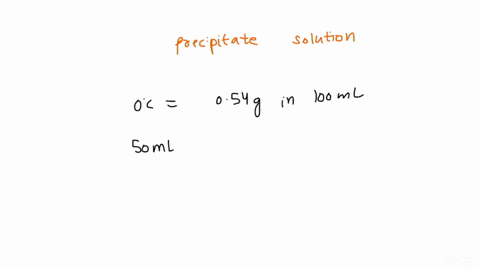 precipitate solution
0°C = 0.54g in 100mL
50mL